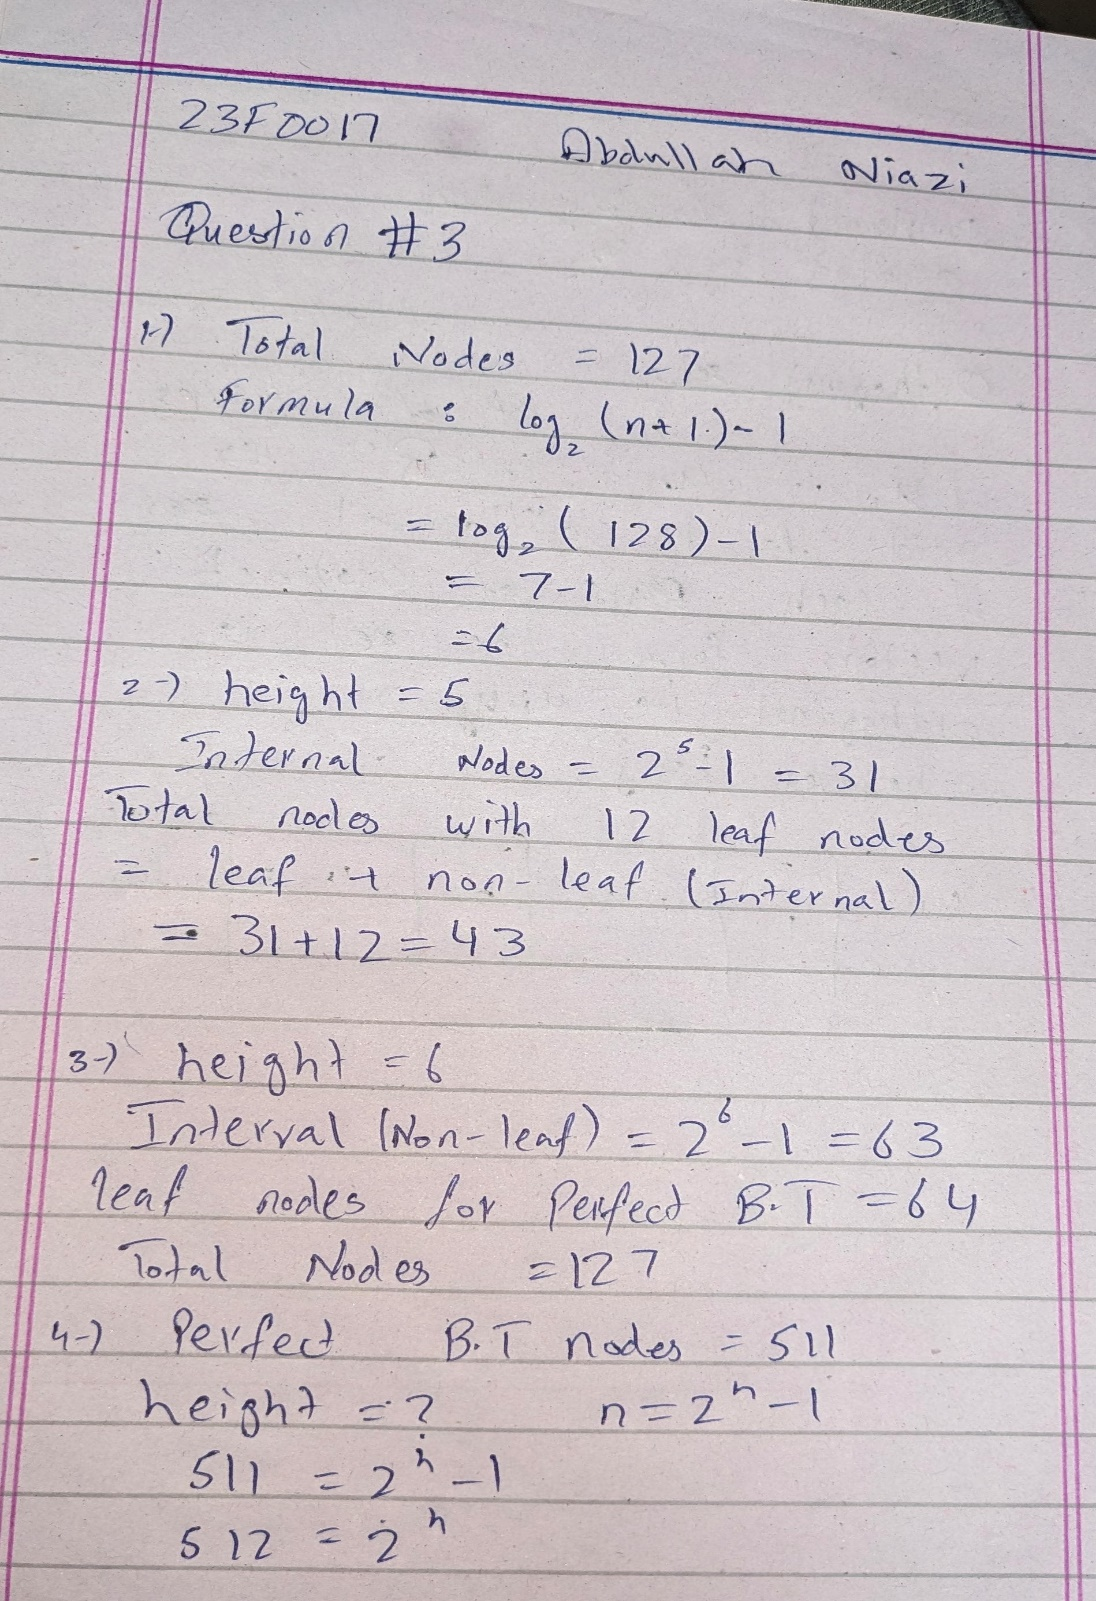 23F0017
Abdullah Niazi
Question #3
1-) Total Nodes = 127
Formula : log₂ (n+1)-1
= log₂ (128)-1
= 7-1
=6
2-) height = 5
Internal Nodes = 2⁵-1 = 31
Total nodes with 12 leaf nodes
= leaf + non-leaf (Internal)
= 31+12=43
3-) height = 6
Interval (Non-leaf) = 2⁶-1 =63
leaf nodes for Perfect B.T =64
Total Nodes =127
4-) Perfect B.T nodes = 511
height = ? n=2ʰ-1
511 = 2ʰ-1
512 = 2ʰ